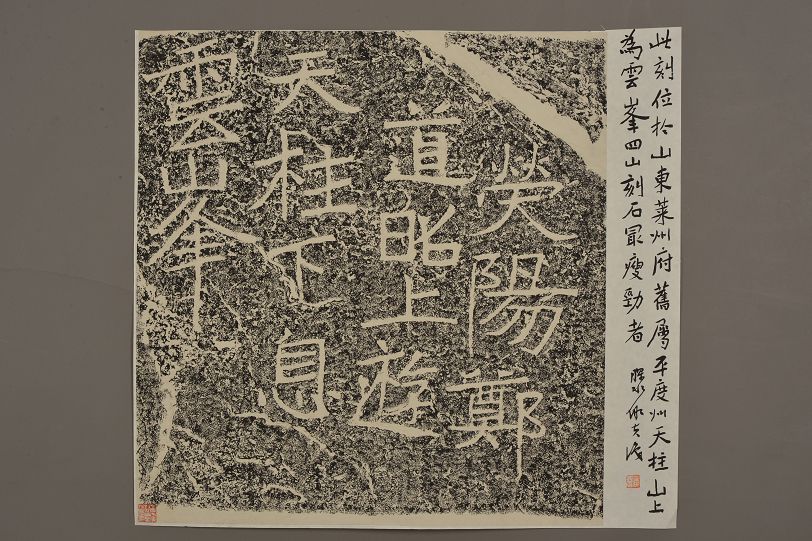 此刻位於山東萊州府舊屬平度州天柱山上
為雲峯四山刻石最瘦勁者
熒陽鄭
道昭上遊
天柱下息
雲峯